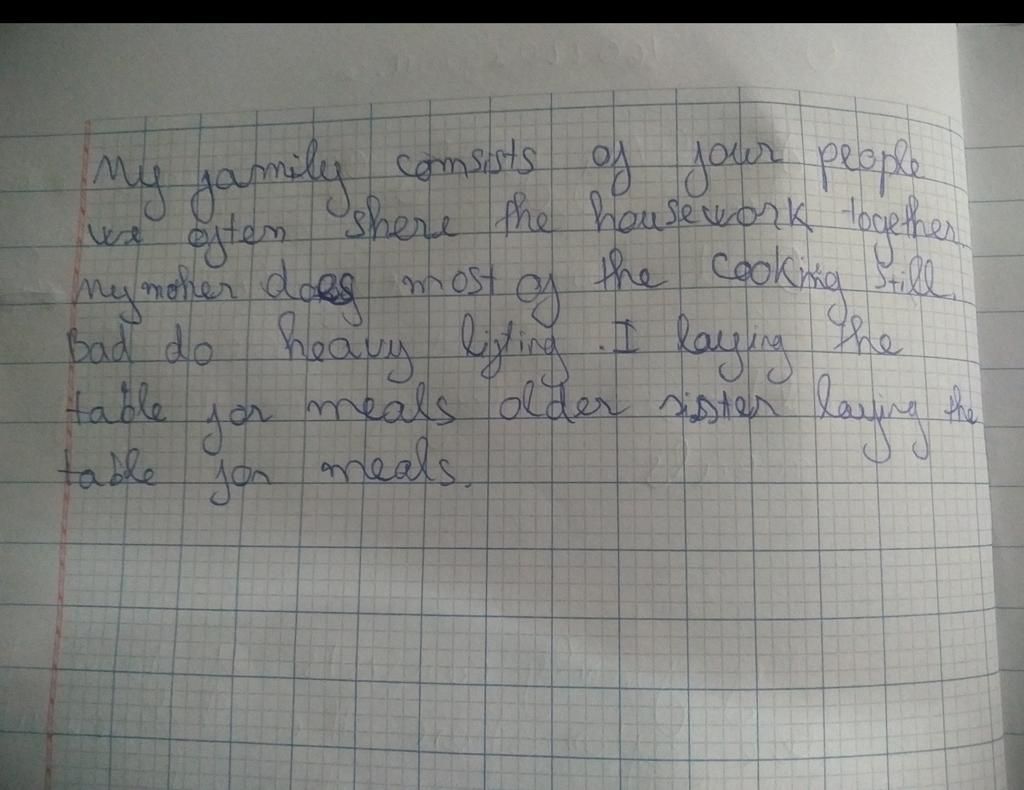 My family consists of four people
we often shere the housework together
My mother does most of the cooking still.
Dad do heavy lifting. I laying the
table for meals older sister laying the
table for meals.